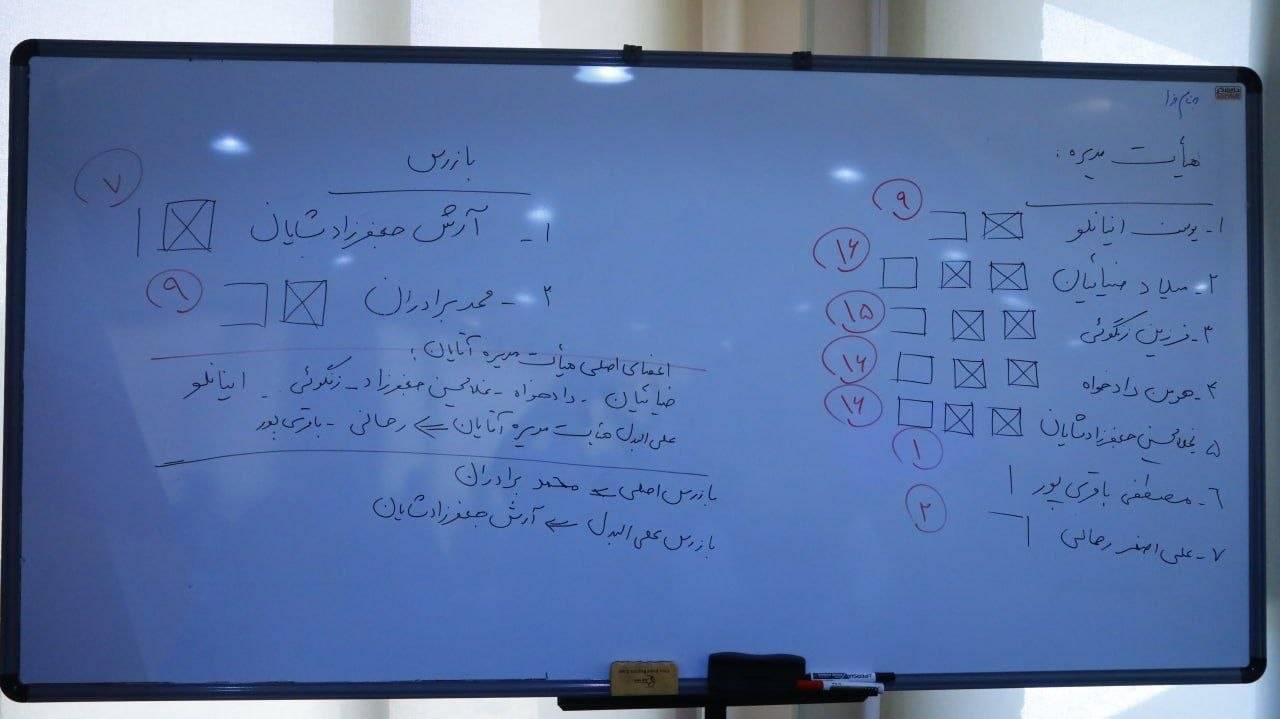 بنام خدا
هیأت مدیره :
۱- یوسف اینانلو ۹
۲- میلاد ضیائیان ۱۶
۳- فرزین زنگوئی ۱۵
۴- هومن دادخواه ۱۶
۵- غلامحسین جعفرزادشایان ۱۶
۶- مصطفی باقری پور ۱
۷- علی اصغر رحمانی ۲
بازرس
۱- آرش جعفرزادشایان ۷
۲- محمد برادران ۹
اعضای اصلی هیأت مدیره آقایان :
ضیائیان - دادخواه - غلامحسین جعفرزاد - زنگوئی - اینانلو
علی البدل هیأت مدیره آقایان ⇐ رحمانی - باقری پور
بازرس اصلی ⇐ محمد برادران
بازرس علی البدل ⇐ آرش جعفرزادشایان